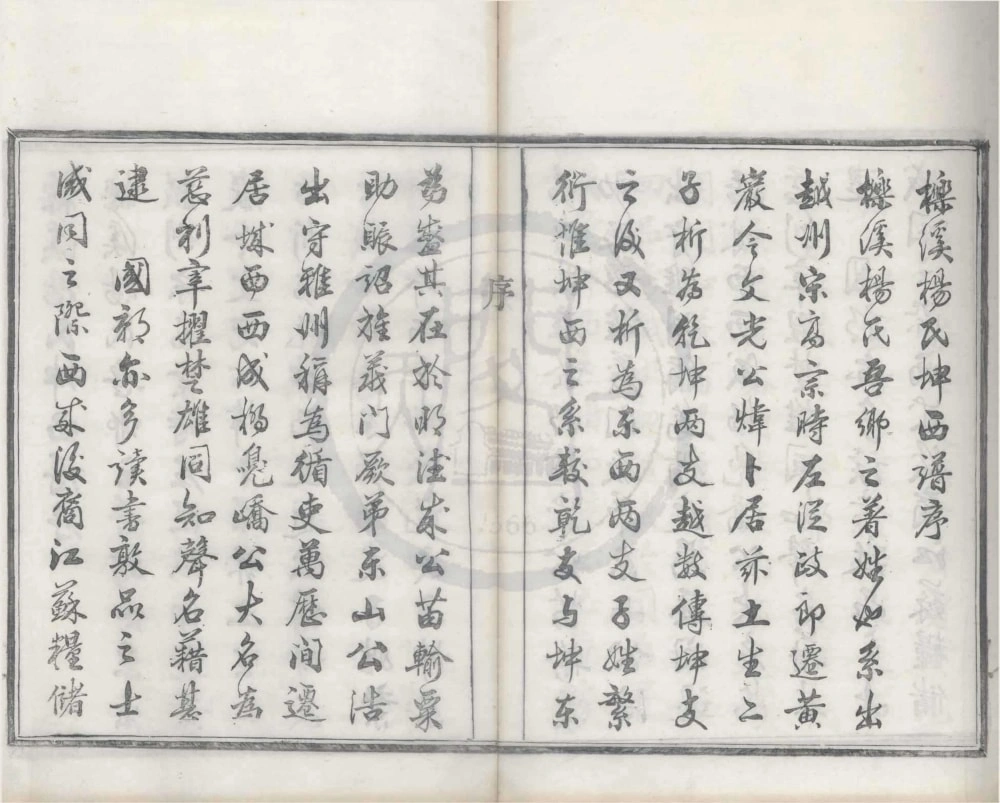 櫟溪楊氏坤西譜序
櫟溪楊氏吾鄉之著姓也系出
越州宋高宗時左從政郎遷黃
巖令文光公煒卜居茲土生二
子析為乾坤兩支越數傳坤支
之後又析為東西兩支子姓繁
衍惟坤西之系較乾支与坤東
序
為盛其在於明公苗輸粟
助賑詔旌義門厥弟東山公浩
出守雅州稱為循吏萬歷间遷
居城西西成橋鳧嶠公大名為
慈利宰擢楚雄同知聲名藉甚
逮 國朝亦多讀書敦品之士
咸同之際西後裔江蘇糧儲